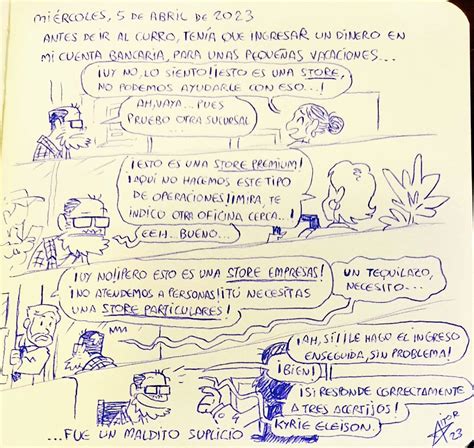 MIÉRCOLES, 5 DE ABRIL DE 2023
ANTES DE IR AL CURRO, TENÍA QUE INGRESAR UN DINERO EN
MI CUENTA BANCARIA, PARA UNAS PEQUEÑAS VACACIONES...
¡UY NO, LO SIENTO! ¡ESTO ES UNA STORE,
NO PODEMOS AYUDARLE CON ESO...!
AH, VAYA... PUES
PRUEBO OTRA SUCURSAL
¡ESTO ES UNA STORE PREMIUM!
¡AQUÍ NO HACEMOS ESTE TIPO
DE OPERACIONES! ¡MIRA, TE
INDICO OTRA OFICINA CERCA...!
EEH.. BUENO...
¡UY NO! ¡PERO ESTO ES UNA STORE EMPRESAS!
¡NO ATENDEMOS A PERSONAS! ¡TÚ NECESITAS
UNA STORE PARTICULARES!
UN TEQUILAZO,
NECESITO...
¡AH, SÍ! ¡LE HAGO EL INGRESO
ENSEGUIDA, SIN PROBLEMA!
¡BIEN!
¡SI RESPONDE CORRECTAMENTE
A TRES ACERTIJOS!
KYRIE ELEISON.
...FUE UN MALDITO SUPLICIO
AITOR
23